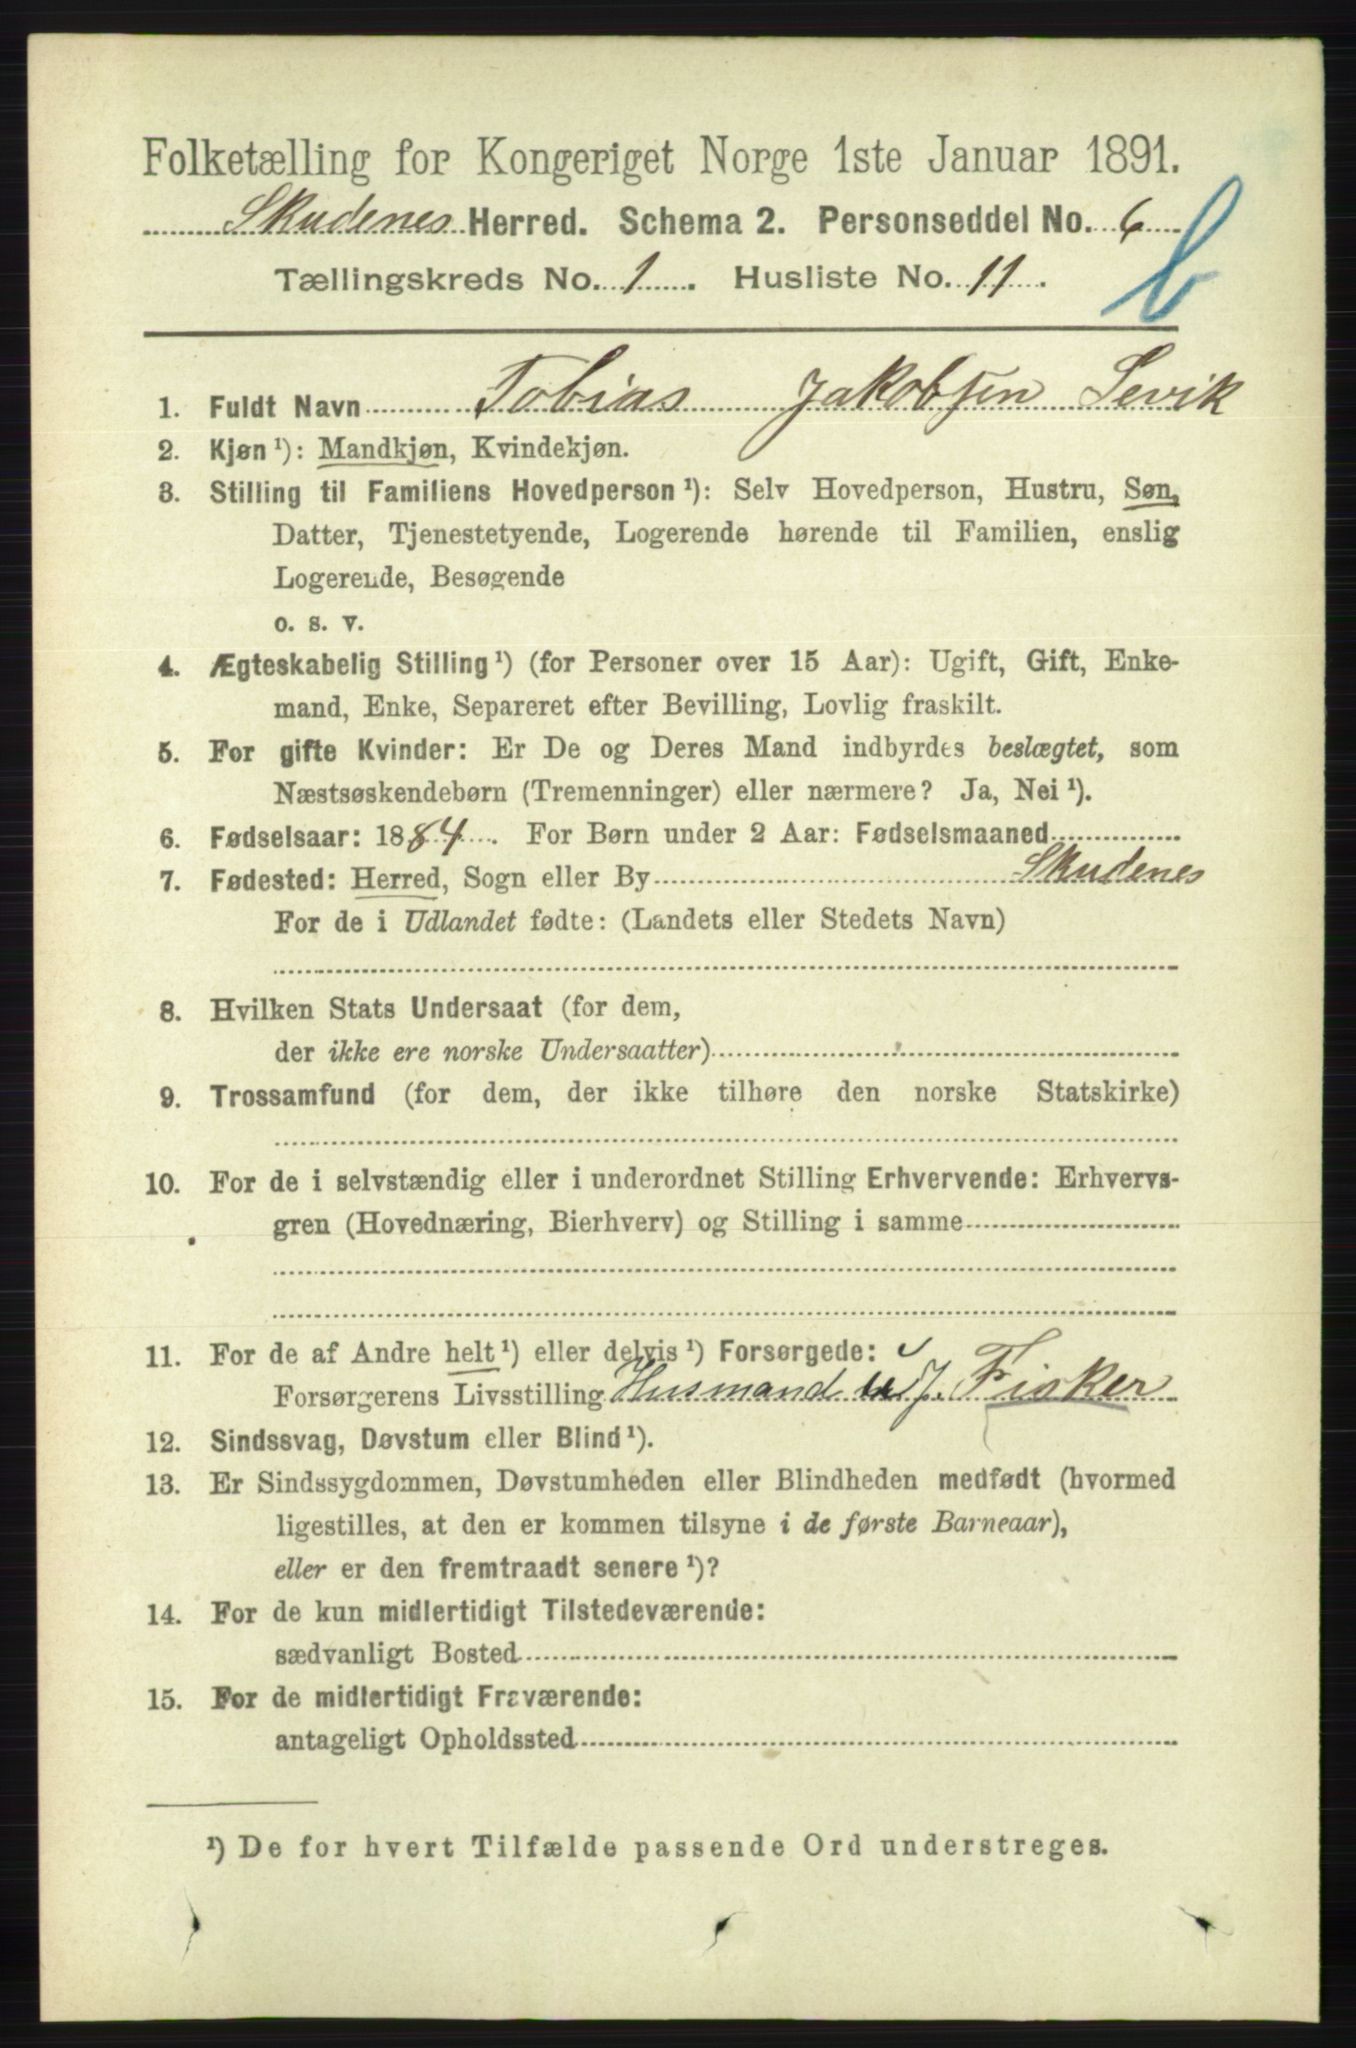 Folketælling for Kongeriget Norge 1ste Januar 1891.
Skudenes Herred. Schema 2. Personseddel No. 6
b
Tællingskreds No. 1. Husliste No. 11.
1. Fuldt Navn Tobias Jakobsen Sevik
2. Kjøn¹): Mandkjøn, Kvindekjøn.
3. Stilling til Familiens Hovedperson¹): Selv Hovedperson, Hustru, Søn,
Datter, Tjenestetyende, Logerende hørende til Familien, enslig
Logerende, Besøgende
o. s. v.
4. Ægteskabelig Stilling¹) (for Personer over 15 Aar): Ugift, Gift, Enke-
mand, Enke, Separeret efter Bevilling, Lovlig fraskilt.
5. For gifte Kvinder: Er De og Deres Mand indbyrdes beslægtet, som
Næstsøskendebørn (Tremenninger) eller nærmere? Ja, Nei¹).
6. Fødselsaar: 1884. For Børn under 2 Aar: Fødselsmaaned
7. Fødested: Herred, Sogn eller By Skudenes
For de i Udlandet fødte: (Landets eller Stedets Navn)
8. Hvilken Stats Undersaat (for dem,
der ikke ere norske Undersaatter)
9. Trossamfund (for dem, der ikke tilhøre den norske Statskirke)
10. For de i selvstændig eller i underordnet Stilling Erhvervende: Erhvervs-
gren (Hovednæring, Bierhverv) og Stilling i samme
11. For de af Andre helt¹) eller delvis¹) Forsørgede:
Forsørgerens Livsstilling Husmand u J. Fisker
12. Sindssvag, Døvstum eller Blind¹).
13. Er Sindssygdommen, Døvstumheden eller Blindheden medfødt (hvormed
ligestilles, at den er kommen tilsyne i de første Barneaar),
eller er den fremtraadt senere¹)?
14. For de kun midlertidigt Tilstedeværende:
sædvanligt Bosted
15. For de midlertidigt Fraværende:
antageligt Opholdssted
¹) De for hvert Tilfælde passende Ord understreges.